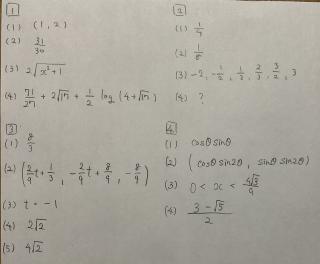 1
(1) (1, 2)
(2) 31/30
(3) 2√(x²+1)
(4) 71/27 + 2√17 + 1/2 log (4+√17)
2
(1) 1/9
(2) 1/8
(3) -2, -1/2, 1/3, 2/3, 3/2, 3
(4) ?
3
(1) 8/3
(2) (2/9 t + 1/3, -2/9 t + 8/9, -8/9)
(3) t = -1
(4) 2√2
(5) 4√2
4
(1) cosθ sinθ
(2) (cosθ sin2θ, sinθ sin2θ)
(3) 0 < x < 4√3/9
(4) 3-√5/2